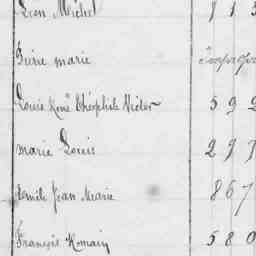 Léon Michel 1 1 3
marie
Louis René Théophile Victor 5 9 2
marie Louis 2 9 7
Emile Jean Marie 8 6 7
François Romain 5 8 0